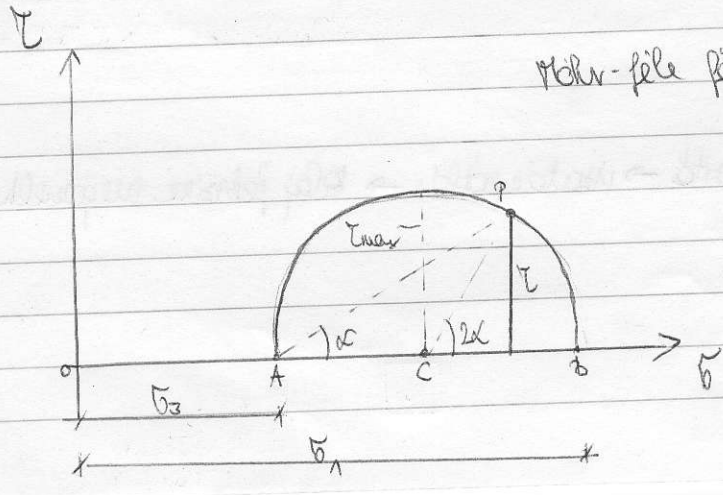 τ
Mohr-féle
P
τmax
τ
α
2α
0
A
C
B
σ
σ3
σ1